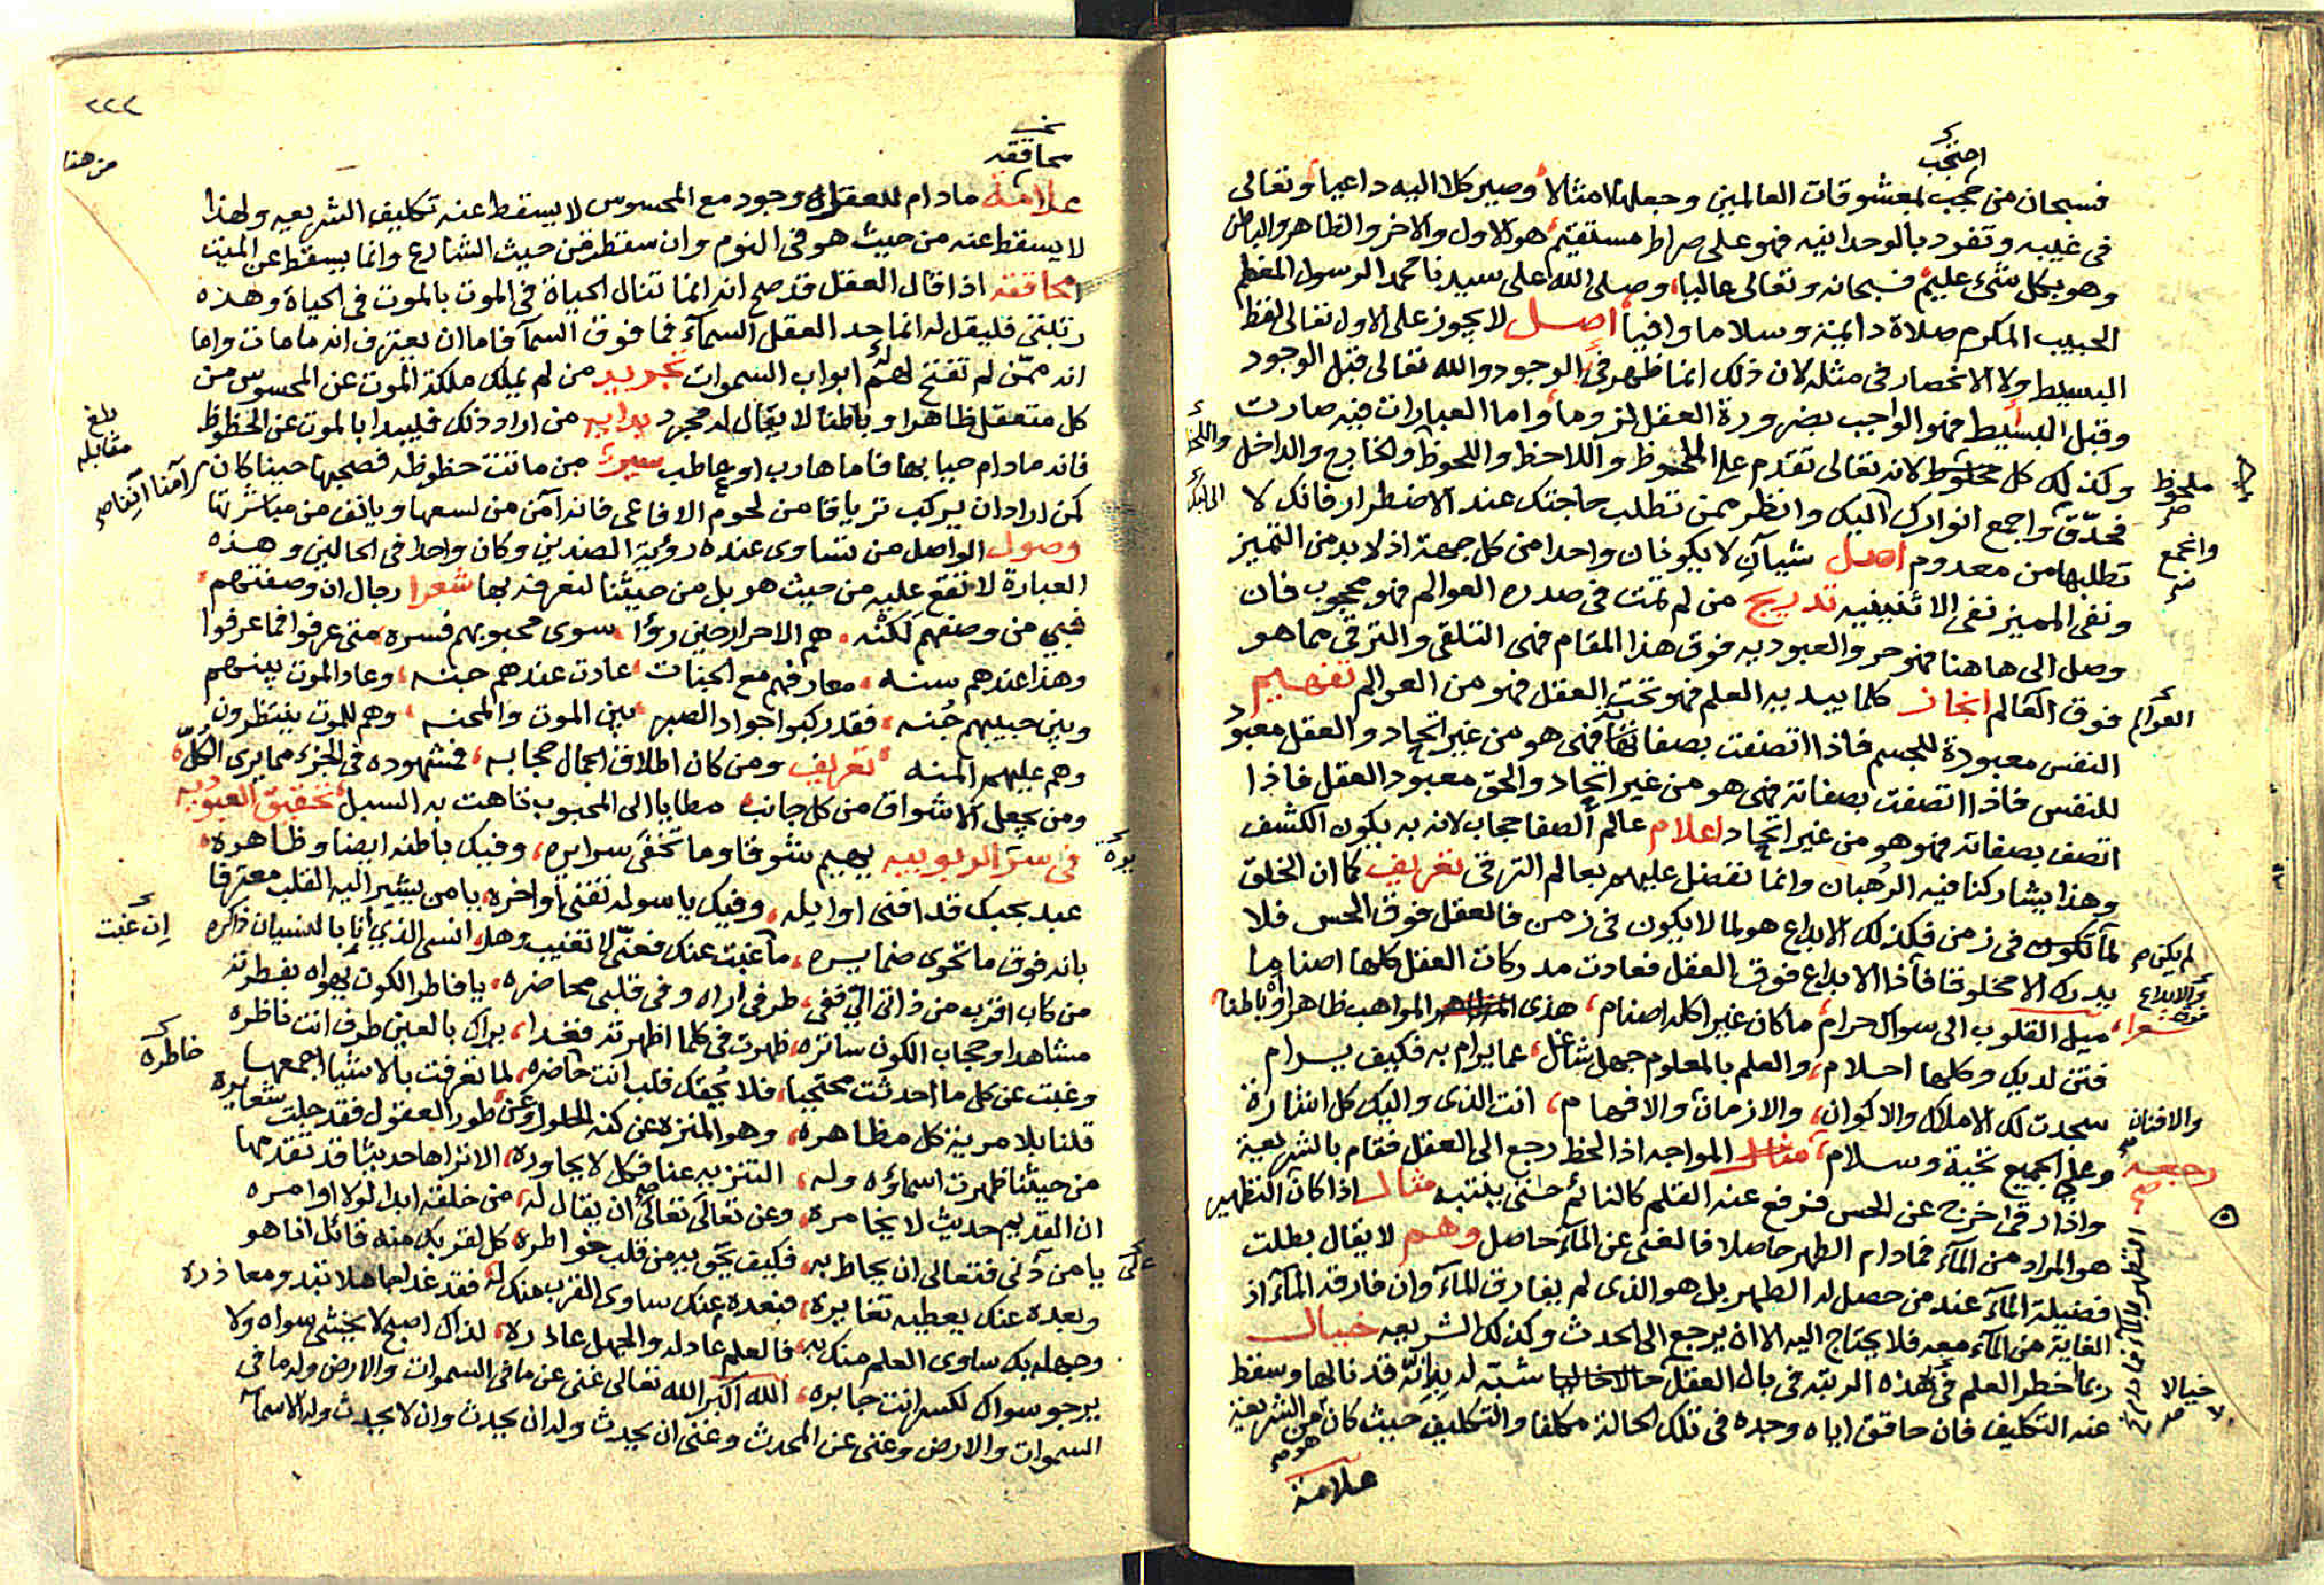 احتجب
فسبحان من حجب بمعشوقات العالمين وجعلها امثالا وصير كلا اليه داعيا وتعالى
فى غيبه وتفرد بالوحدانيه فهو على صراط مستقيم هو الاول والاخر والظاهر والباطن
وهو بكل شىء عليم فسبحانه وتعالى عاليا وصلى الله على سيدنا محمد الرسول المعظم
الحبيب المكرم صلاة دايمة وسلاما وافيا اصل لا يجوز على الاول تعالى لفظ
البسيط ولا الانحصار فى مثله لان ذلك انما ظهر فى الوجود والله تعالى قبل الوجود
وقبل البسيط فهو الواجب بضرورة العقل لزوما واما العبارات فيه صارت
وكذلك كل محلوظ لانه تعالى تقدم على الملحوظ واللاحظ واللحوظ والخارج والداخل
ملحوظ صح
فحدّق واجمع انوارك اليك وانظر ممن تطلب حاجتك عند الاضطرار فانك لا
واجمع
تطلبها من معدوم اصل شيآن لا يكونان واحدا من كل جهة اذ لا بد من التمييز
ونفى المميز نفى الاثنينيه تدريج من لم تمت فى صدره العوالم فهو محجوب فان
وصل الى هاهنا فهو حر والعبوديه فوق هذا المقام فهى التلقى والترقى مما هو
فوق العالم انجاز كلما يبديه العلم فهو تحت العقل فهو من العوالم تفهيم
العوالم
النفس معبودة للجسم فاذا اتصفت بصفاتها فهى هو من غير اتحاد والعقل معبود
للنفس فاذا اتصفت بصفاته فهى هو من غير اتحاد والحق معبود العقل فاذا
اتصف بصفاته فهو هو من غير اتحاد اعلام عالم الصفا حجاب لانه به يكون الكشف
وهذا يشاركنا فيه الرهبان وانما تفضل عليهم بعالم الترقى تعريف كما ان الخلق
لما تكون فى زمن فكذلك الابداع هو لما لا يكون فى زمن فالعقل فوق الحس فلا
لم يكن صح
يدرك الا مخلوقا فاذا الابداع فوق العقل فعادت مدركات العقل كلها اصناما
والابداع فوق
شعرا ميل القلوب الى سواك حرام ما كان غيرا كله اصنام هذى المواهب ظاهرا وباطنا
فتن لديك وكلها احلام والعلم بالمعلوم جهل شاغل عما يرام به فكيف يرام
سجدت لك الاملاك والاكوان والازمان والافهام انت الذى واليك كل اشارة
والافنان
وعلى الجميع تحية وسلام مثال المواجه اذ الحظ رجع الى العقل فقام بالشريعة
رجعه صح
واذا رقى اخرج عن الحس فرفع عنه القلم كالنائم حتى ينتبه مثال اذا كان التطهير
هو المراد من المآء فمادام الطهر حاصلا فالغنى عن المآء حاصل وهم لا يقال بطلت
فضيلة المآء عند من حصل له الطهر بل هو الذى لم يفارق المآء وان فارقه المآء اذ
الغاية من المآء معه فلا يحتاج اليه الا ان يرجع الى الحدث وكذلك الشريعه خيال
ربما خطر العلم فى هذه الرتبه فى بال العقل حالا خاليا شبّه له به انه قد نالها وسقط
خيالا
عنه التكليف فان حاقق اياه وجده فى تلك الحالة مكلفا والتكليف حيث كان من الشريعة
علامة
٢٢٢
من هنا
محاققه
علامة مادام للعقل وجود مع المحسوس لا يسقط عنه تكليف الشريعه ولهذا
لا يسقط عنه من حيث هو فى النوم وان سقط فمن حيث الشارع وانما يسقط عن الميت
محاققه اذا قال العقل قد صح انه انما تنال الحياة فى الموت بالموت فى الحياة وهذه
رتبتى فليقل له انما حد العقل السمآء فما فوق السمآ فاما ان يعترف انه ما مات واما
انه ممّن لم تفتح لهم ابواب السموات تجريد من لم يملك ملكة الموت عن المحسوس من
كل متعقل ظاهرا وباطنا لا يقال له مجرد بدايه من اراد ذلك فليبدا بالموت عن الحظوظ
بلغ مقابله
فانه مادام حيا بها فاما هارب او عاطب سير من ماتت حظوظه فصحبها حينا كان
كمن اراد ان يركب ترياقا من لحوم الافاعى فانه آمن من لسعها ويانف من مباشرتها
وصول الواصل من تساوى عنده رؤية الضدين وكان واحدا فى الحالين وهذه
العبارة لا تقع عليه من حيث هو بل من حيثنا لنعرفه بها شعرا رجال ان وصفتهم
فبى من وصفهم لكنه هم الاحرار حين رؤا سوى محبوبهم فسره متى عرفوا فما عرفوا
وهذا عندهم سنه معارفهم مع الجنات عادت عندهم جنه وعاد الموت بينهم
وبين حبيبهم جُنه فقد ركبوا جواد الصبر بين الموت والمحنه وهم للموت ينتظرون
وهم عليهم المنه تعريف ومن كان اطلاق الجمال حجابه فشهوده فى الجزء مما يرى الكل
ومن يجعل الاشواق من كل جانب مطايا الى المحبوب تاهت به السبل تحقيق العبوديه
فى سر الربوبيه يهيم شوقا وما تخفى سرايره وفيك باطنه ايضا وظاهره
عبد بحبك قد افنى اوايله وفيك يا سوله تفنى اواخره يا من يشير اليه القلب معترفا
بانه فوق ما تحوى ضمايره ما غبت عنك فعنّى لا تغيب وهل انسى الذى انا بالنسيان ذاكره
إن غبت
من كان اقرب من ذاتى الىّ ففى طرفى اراه وفى قلبى محاضره يا فاطر الكون يهواه بفطرته
مشاهدا وحجاب الكون ساتره ظهرت فى كلما اظهرته فغدا يراك بالعين طرف انت ناظره
وغبت عن كل ما احدثت محتجبا فلا يحقك قلب انت حاضره لما تعرفت بالاشيا اجمعها
خاطره
قلنا بلا مرية كل مظاهره وهو المنزه عن كنه الحلول وعن طور العقول فقد جلت شعايره
من حيثنا ظهرت اسماؤه وله التنزيه عنا فكل لا يجاوره الا تراها حديثا قد تقدمها
ان القديم حديث لا يخامره وعن تعالى تعالى ان يقال له من خلقه ابدا لولا اوامره
يا من دنى فتعالى ان يحاط به فكيف يحويه من قلب خواطره كل لقربك منه قائل انا هو
وبعده عنك يعطيه تغايره فبعده عنك ساوى القرب منك له فقد غدا جاهلا تبدو معاذره
وجهله بك ساوى العلم منك به فالعلم عاد له والجهل عاذره لذاك اصبح لا يخشى سواه ولا
يرجو سواك لكسر انت جابره الله اكبر الله تعالى غنى عن ما فى السموات والارض وله ما فى
السموات والارض وغنى عن المحدث وغنى ان يحدث وله ان يحدث وان لا يحدث وله الاسمآ